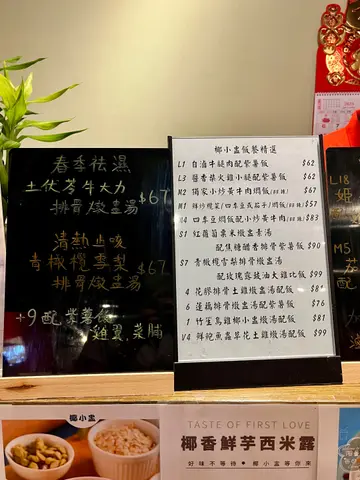 春季祛濕
土伏苓牛大力
排骨燉盅湯
$67
清熱止咳
青橄欖雪梨
排骨燉盅湯
$67
+9配紫薯飯
雞翼,菜脯
椰小盅飯餐精選
L1 自滷牛腱肉配紫薯飯 $62
L3 醬香柴火雞小盅飯 $62
M2 獨家小炒黃牛肉燜飯 $67
$57
四季豆燜飯配小炒黃牛肉 $83
S1 紅蘿蔔粟米燉盅素湯
配焦糖醋香排骨紫薯飯 $90
S7 青橄欖雪梨排骨燉盅湯
配玫瑰露豉油大雞比飯 $99
4 花膠排骨土雞燉盅湯配飯
6 蓮藕排骨土雞燉盅湯配飯 $76
1 竹笙烏雞椰小盅燉湯配飯 $81
V4 鮮鮑魚蟲草花土雞燉湯配飯 $99
L18
M5
椰小盅
TASTE OF FIRST LOVE
椰香鮮芋西米露
好味不等待 椰小盅等你來